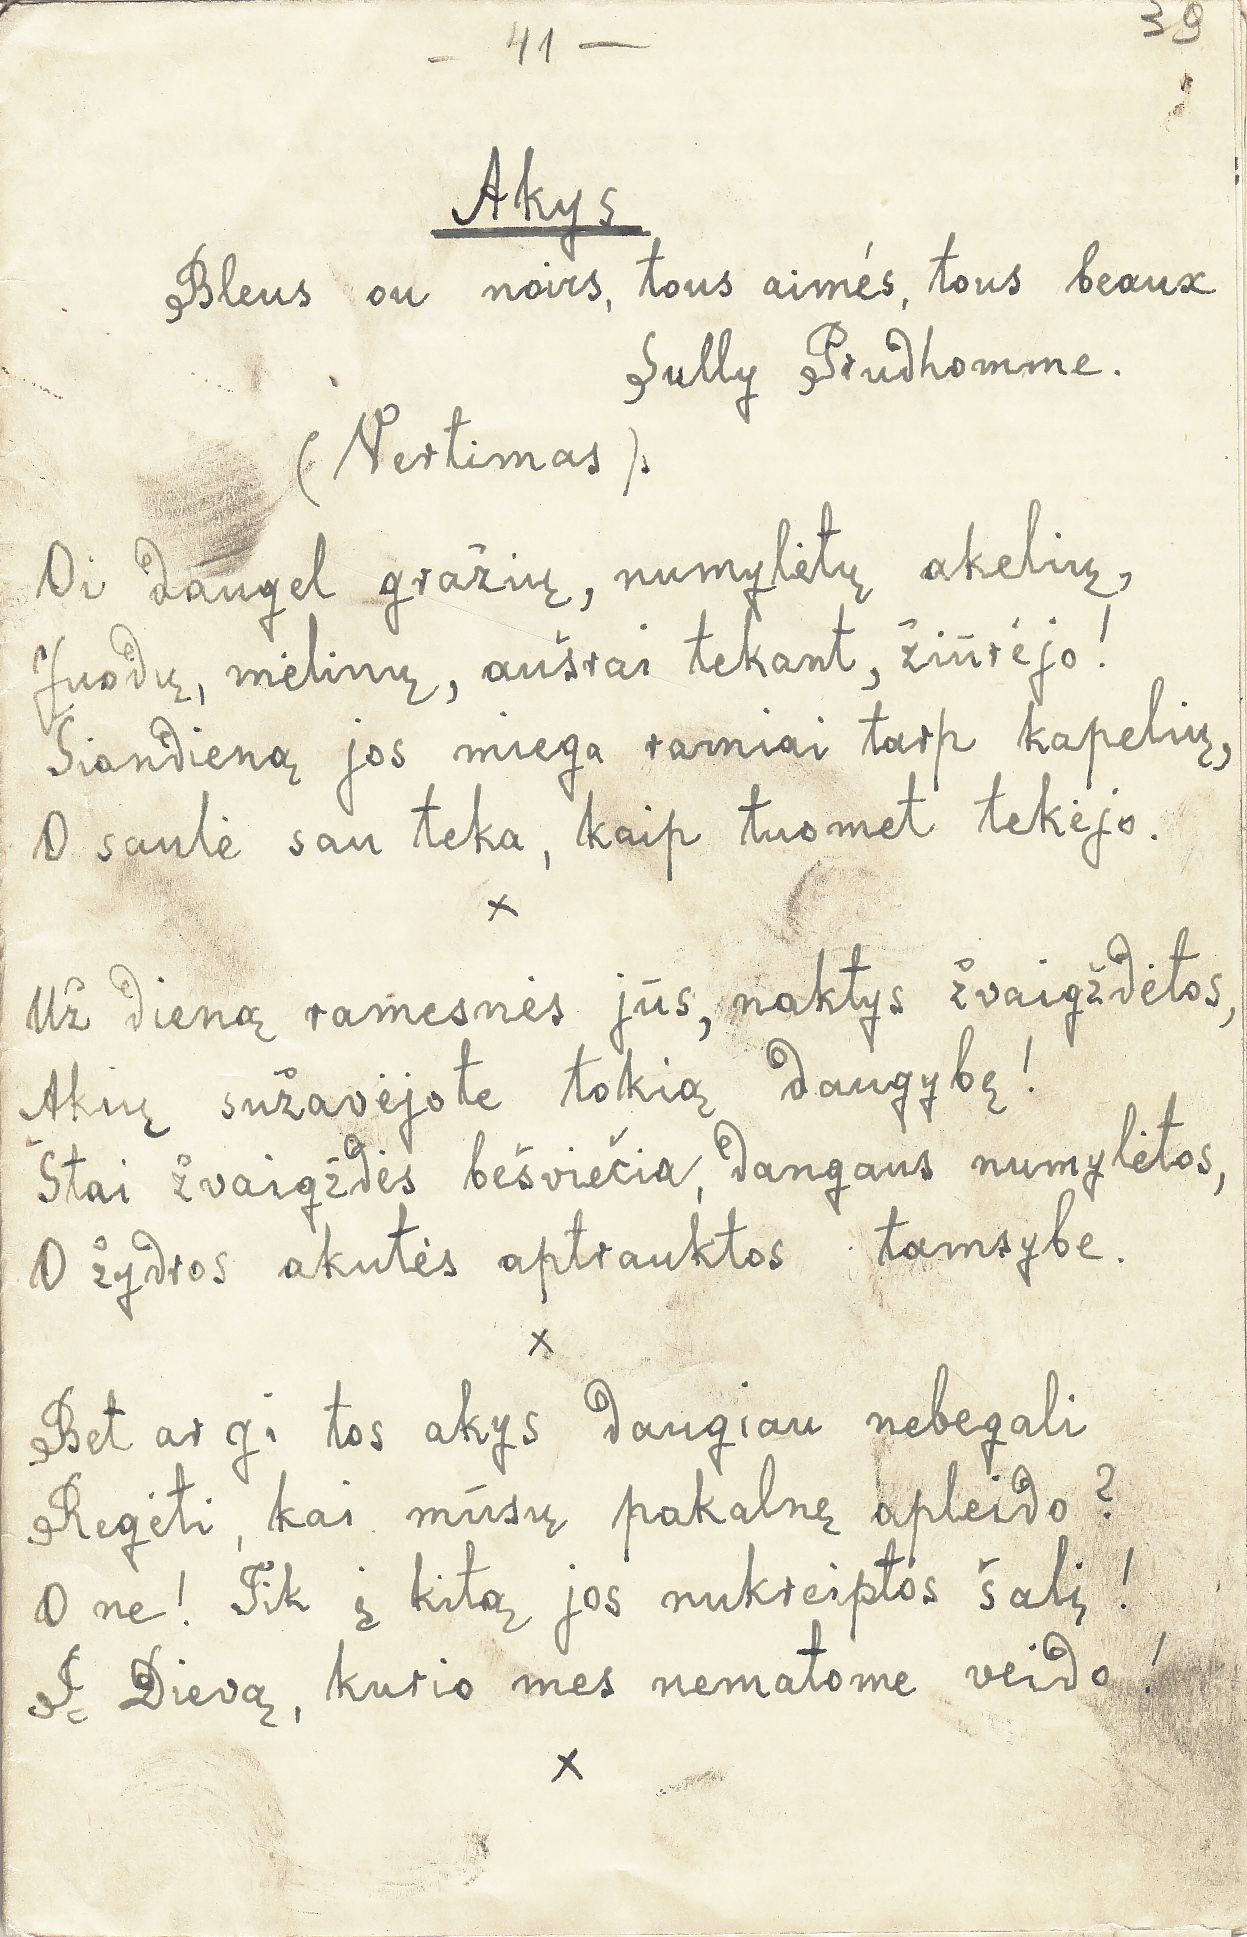 - 41 -
39
Akys
Bleus ou noirs, tous aimés, tous beaux
Sully Prudhomme.
(Vertimas).
Oi daugel gražių, numylėtų akelių,
Juodų, mėlinų, aušrai tekant, žiūrėjo!
Šiandieną jos miega ramiai tarp kapelių,
O saulė sau teka, kaip tuomet tekėjo.
x
Už dieną ramesnės jūs, naktys žvaigždėtos,
Akių sužavėjote tokią daugybę!
Štai žvaigždės bešviečia, dangaus numylėtos,
O žydros akutės aptrauktos tamsybe.
x
Bet ar gi tos akys daugiau nebegali
Regėti, kai mūsų pakalnę apleido?
O ne! Tik į kitą jos nukreiptos šalį!
Į Dievą, kurio mes nematome veido!
x